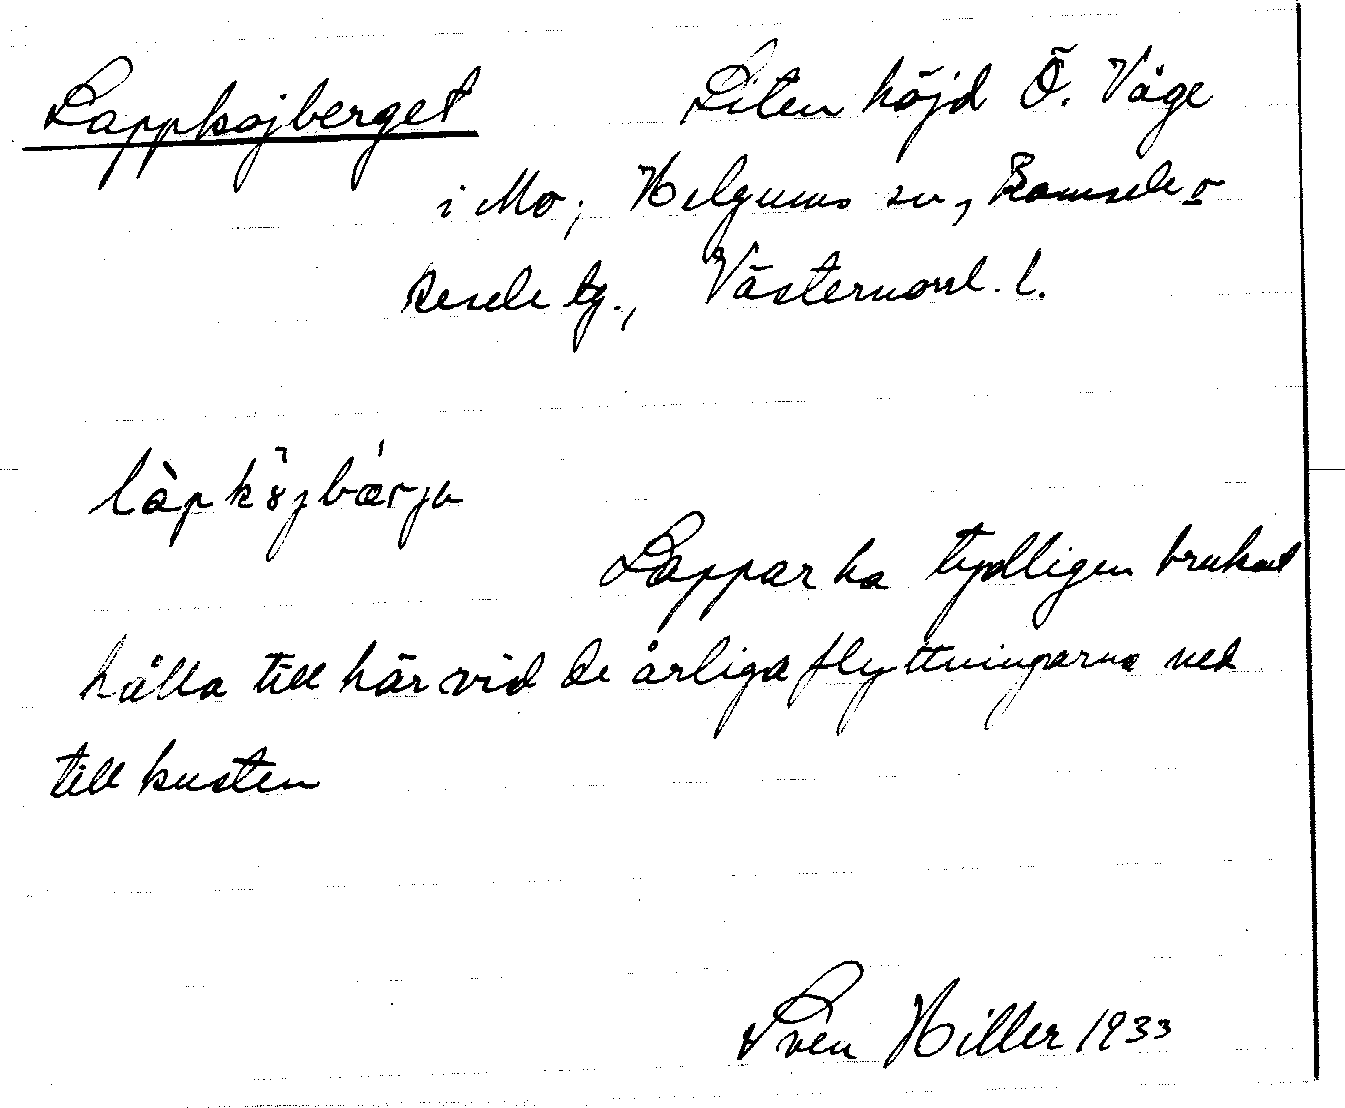 Lappkojberget Liten höjd Ö. Våge
i Mo, Helgums sn, Ramsele o
Resele tg., Västernorrl. l.
Lappar ha tydligen brukat
hålla till här vid de årliga flyttningarna ned
till kusten
Sven Hiller 1933